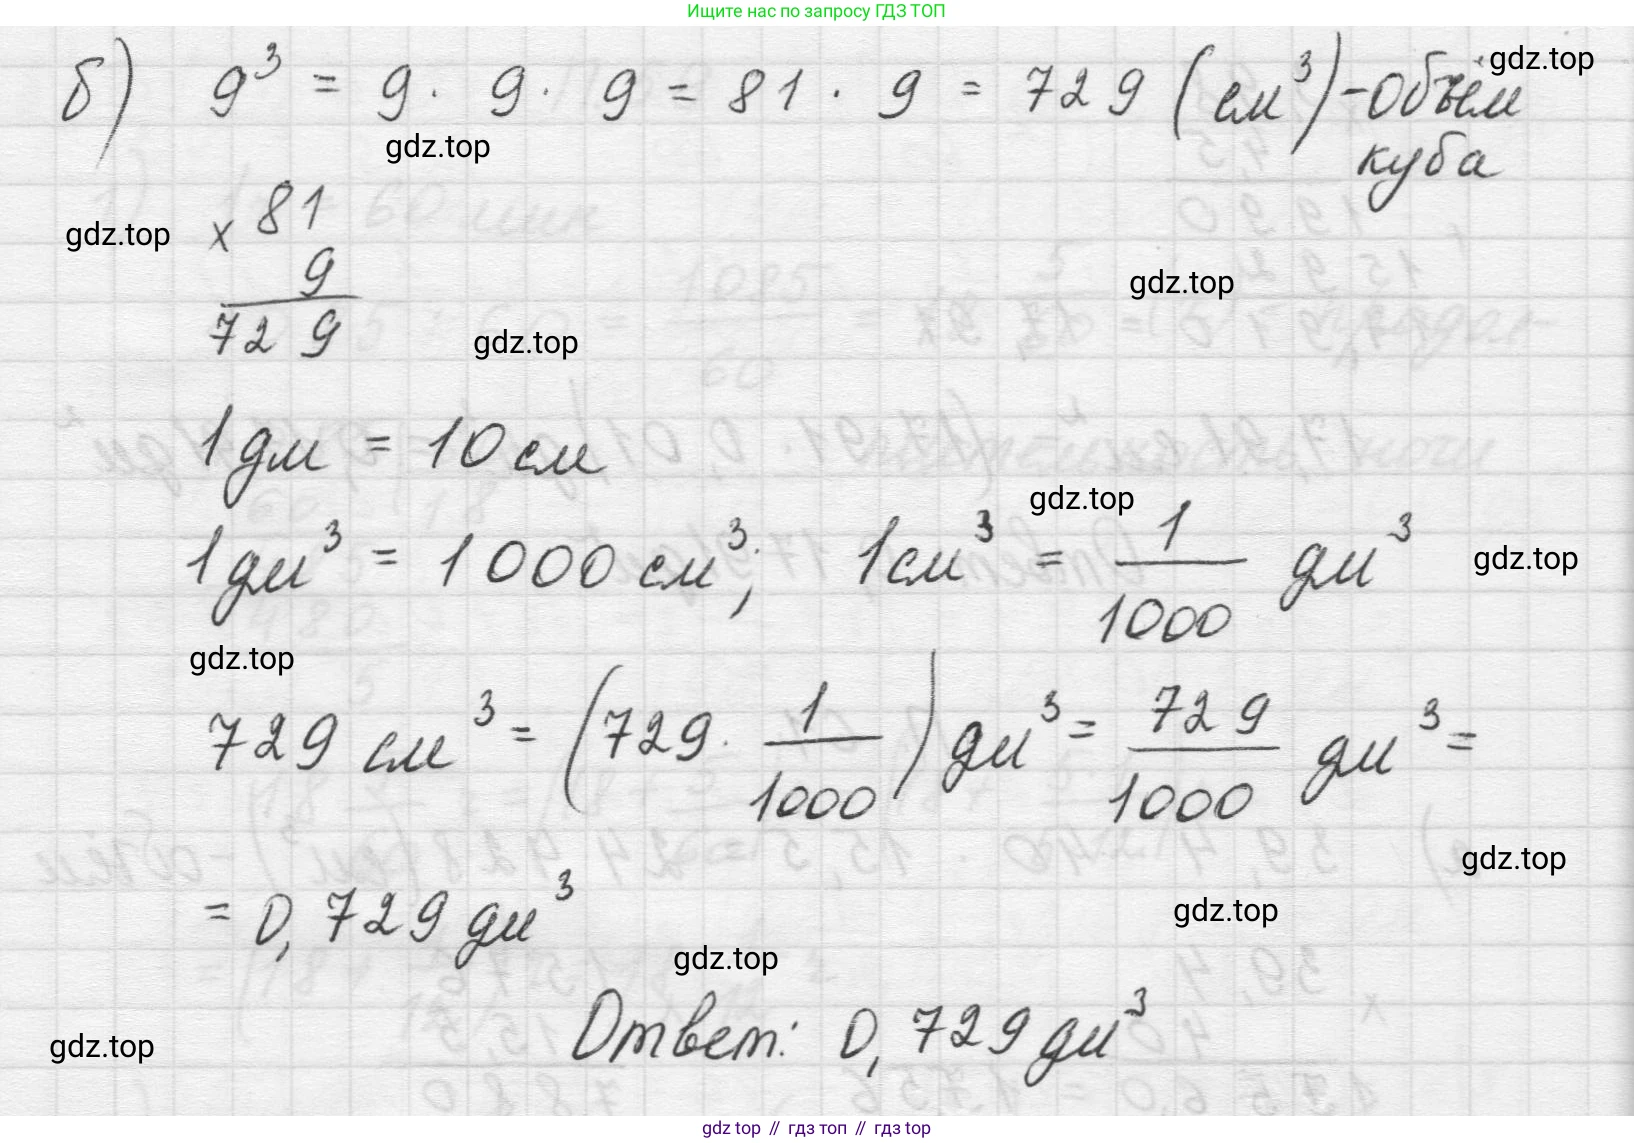 Ищите нас по запросу ГДЗ ТОП
б) 9³ = 9 · 9 · 9 = 81 · 9 = 729 (см³) - объём
gdz.top
куба
gdz.top
× 81
gdz.top
9
gdz.top
729
gdz.top
1 дм = 10 см
gdz.top
1 дм³ = 1000 см³; 1 см³ = 1/1000 дм³
gdz.top
gdz.top
729 см³ = (729 · 1/1000) дм³ = 729/1000 дм³ =
gdz.top
= 0,729 дм³
gdz.top
gdz.top
Ответ: 0,729 дм³
gdz.top
gdz top // гдз топ // гдз top